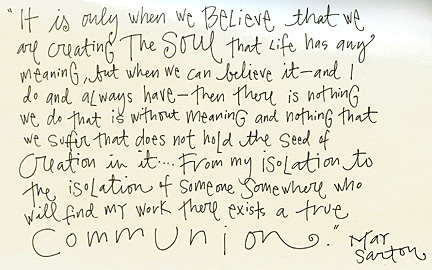 "It is only when we Believe that we
are creating The Soul that Life has any
meaning, but when we can believe it—and I
do and always have—then there is nothing
we do that is without meaning and nothing that
we suffer that does not hold the seed of
Creation in it.... From my isolation to
the isolation of someone somewhere who
will find my work there exists a true
Communion."
May
Sarton